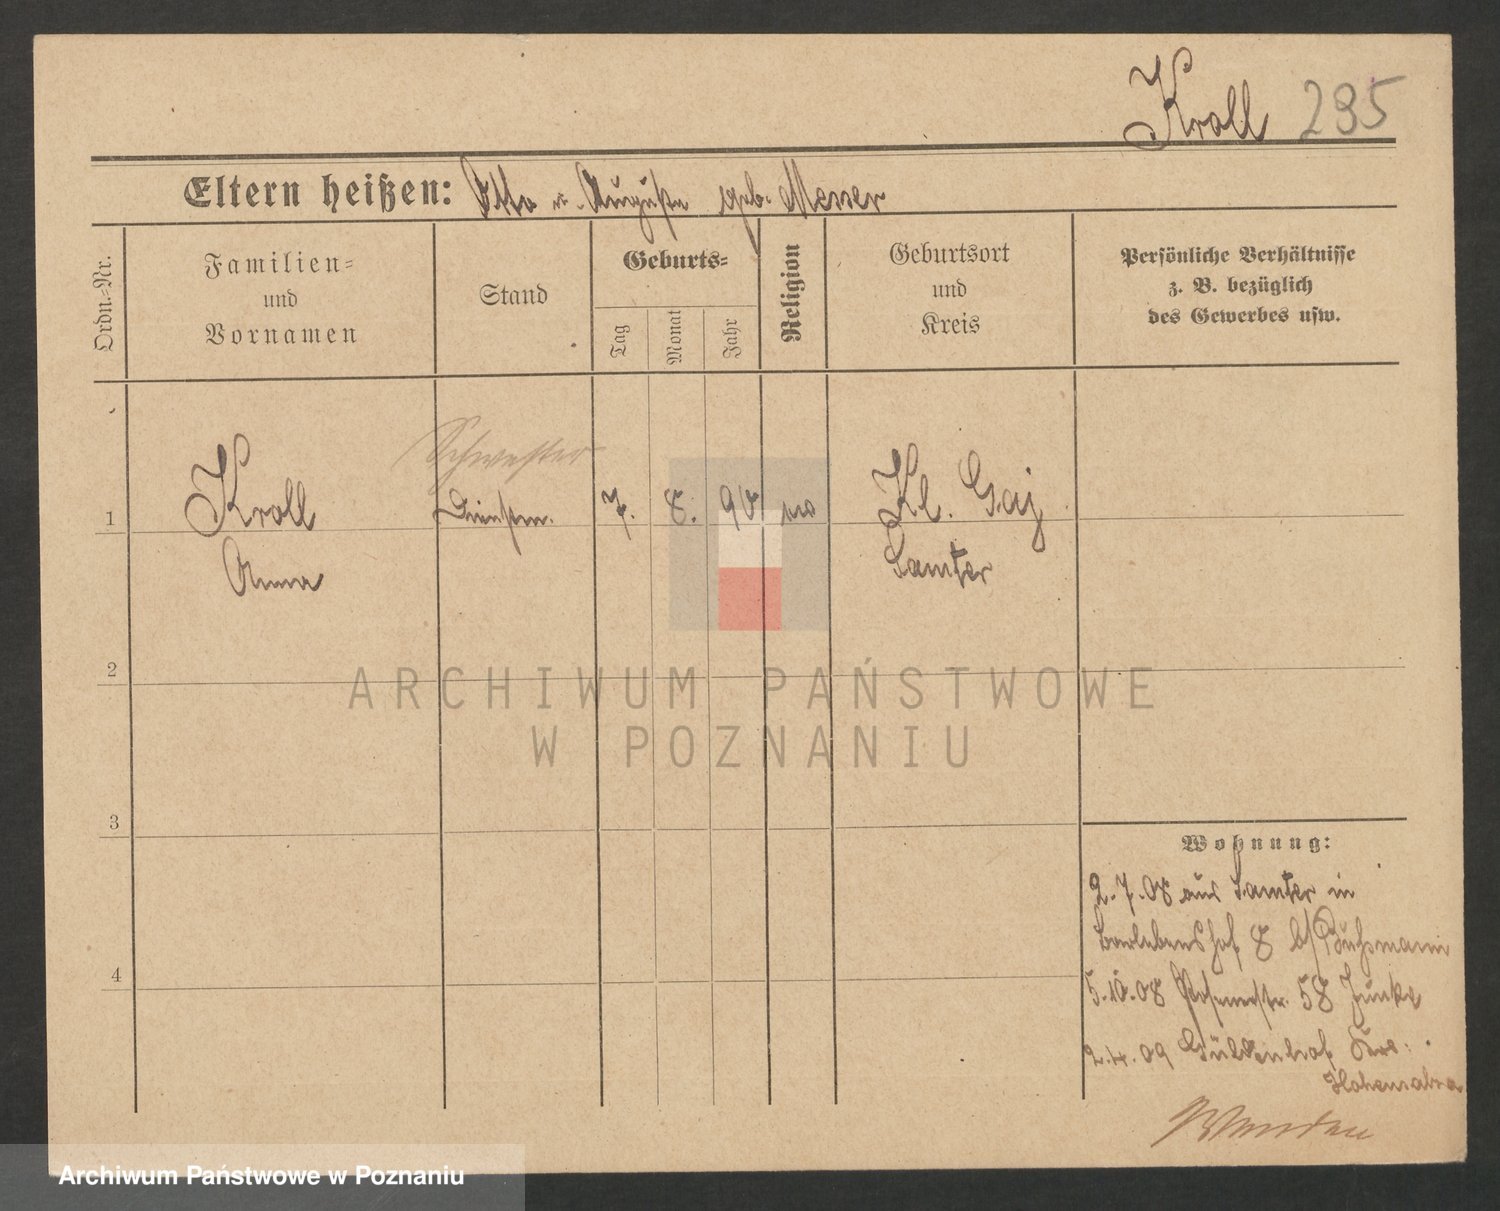 Kroll 235
Eltern heißen: Otto u. Auguste geb.
Ordn.-Nr.
Familien-
und
Vornamen
Stand
Geburts-
Tag
Monat
Jahr
Religion
Geburtsort
und
Kreis
Persönliche Verhältnisse
z. B. bezüglich
des Gewerbes usw.
Schwester
1 Kroll 7. 8. 90 ev Kl. Gaj
Anna Samter
2
ARCHIWUM PAŃSTWOWE
W POZNANIU
3
Wohnung:
2.7.08 aus Samter in
8 b/
4
5.10.08 58 Funke
2.4.09 Güldenhof Krs.
Hohensalza
Wenden
Archiwum Państwowe w Poznaniu